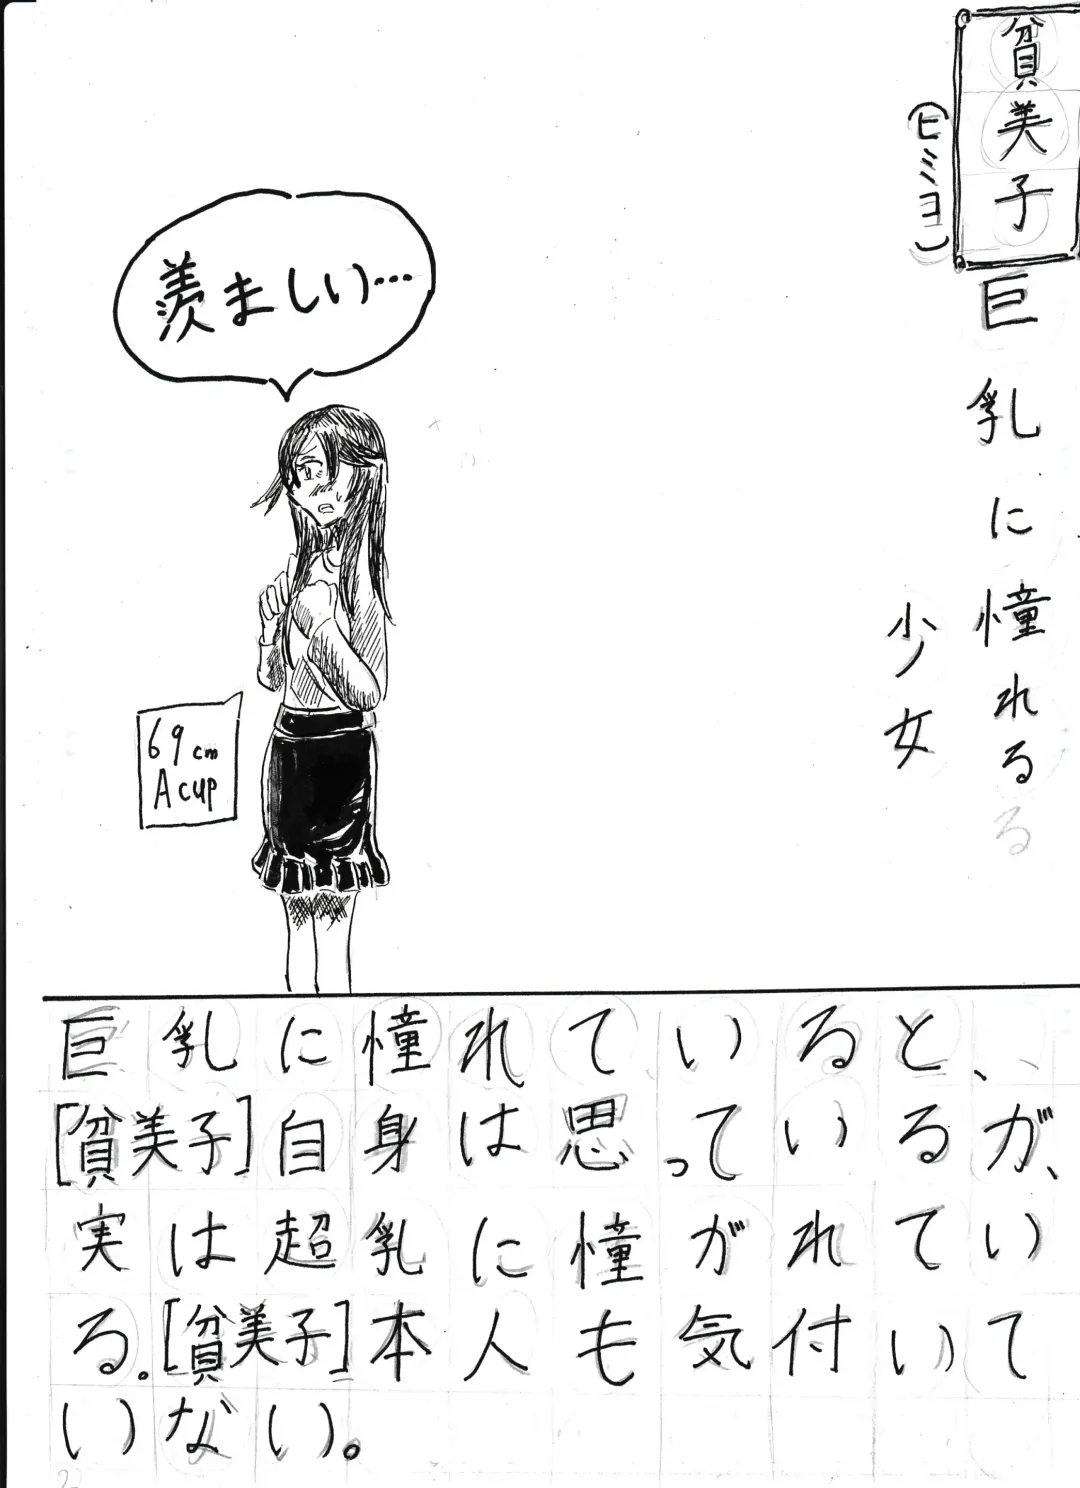 貧美子
(ヒミコ)
巨乳に憧れる
少女
羨ましい…
69cm
A cup
巨乳に憧れていると、
[貧美子]自身は思っているが、
実は超乳に憧がれてい
る。[貧美子]本人も気付いて
いない。